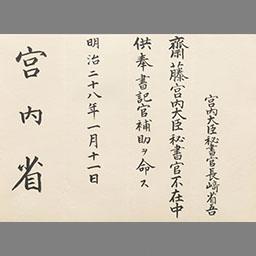 宮内大臣秘書官長崎省吾
齋藤宮内大臣秘書官不在中
供奉書記官補助ヲ命ス
明治二十八年一月十一日
宮内省